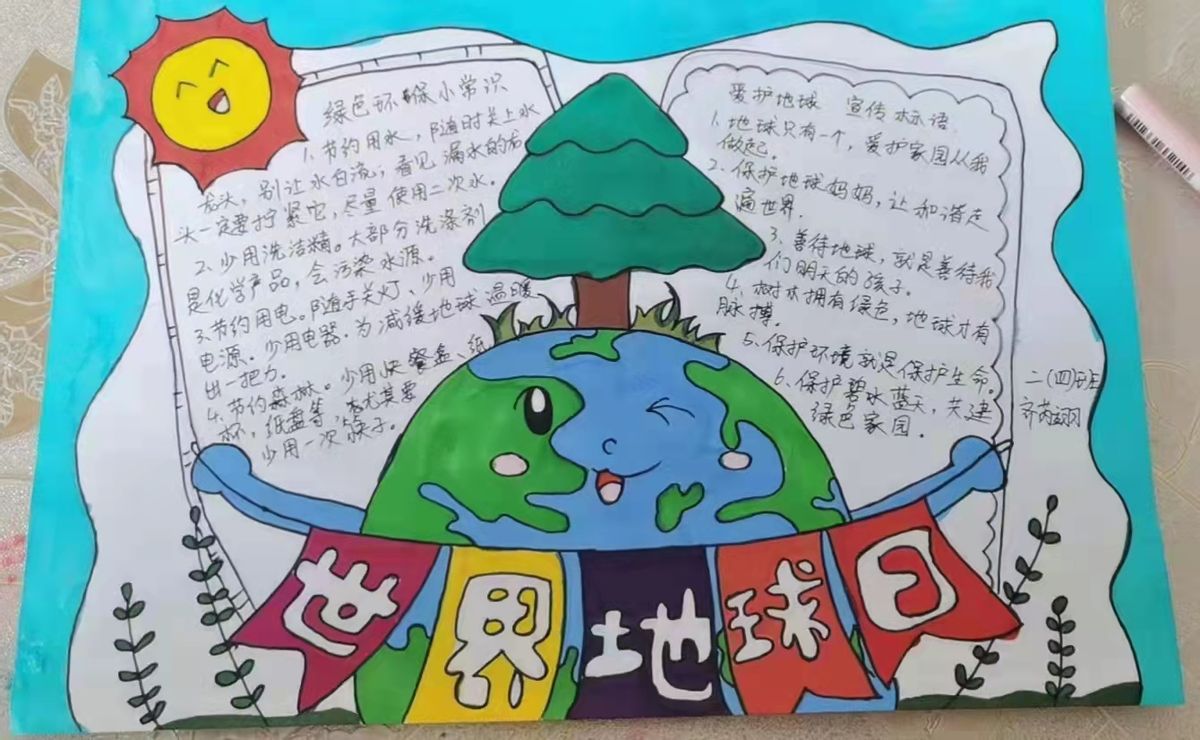 绿色环保小常识
1、节约用水，随时关上水
龙头，别让水白流；看见漏水的龙
头一定要拧紧它，尽量使用二次水。
2、少用洗洁精。大部分洗涤剂
是化学产品，会污染水源。
3、节约用电。随手关灯、少用
电源。少用电器。为减缓地球温暖
出一把力。
4、节约森林。少用快餐盒、纸
杯，纸盘等，尤其要
少用一次筷子。
爱护地球 宣传标语
1、地球只有一个，爱护家园从我
做起。
2、保护地球妈妈，让和谐走
遍世界.
3、善待地球，就是善待我
们明天的孩子.
4、树木拥有绿色，地球才有
脉搏.
5、保护环境就是保护生命。
6、保护碧水蓝天，共建
绿色家园.
二(四)班
齐芮翊
世界地球日